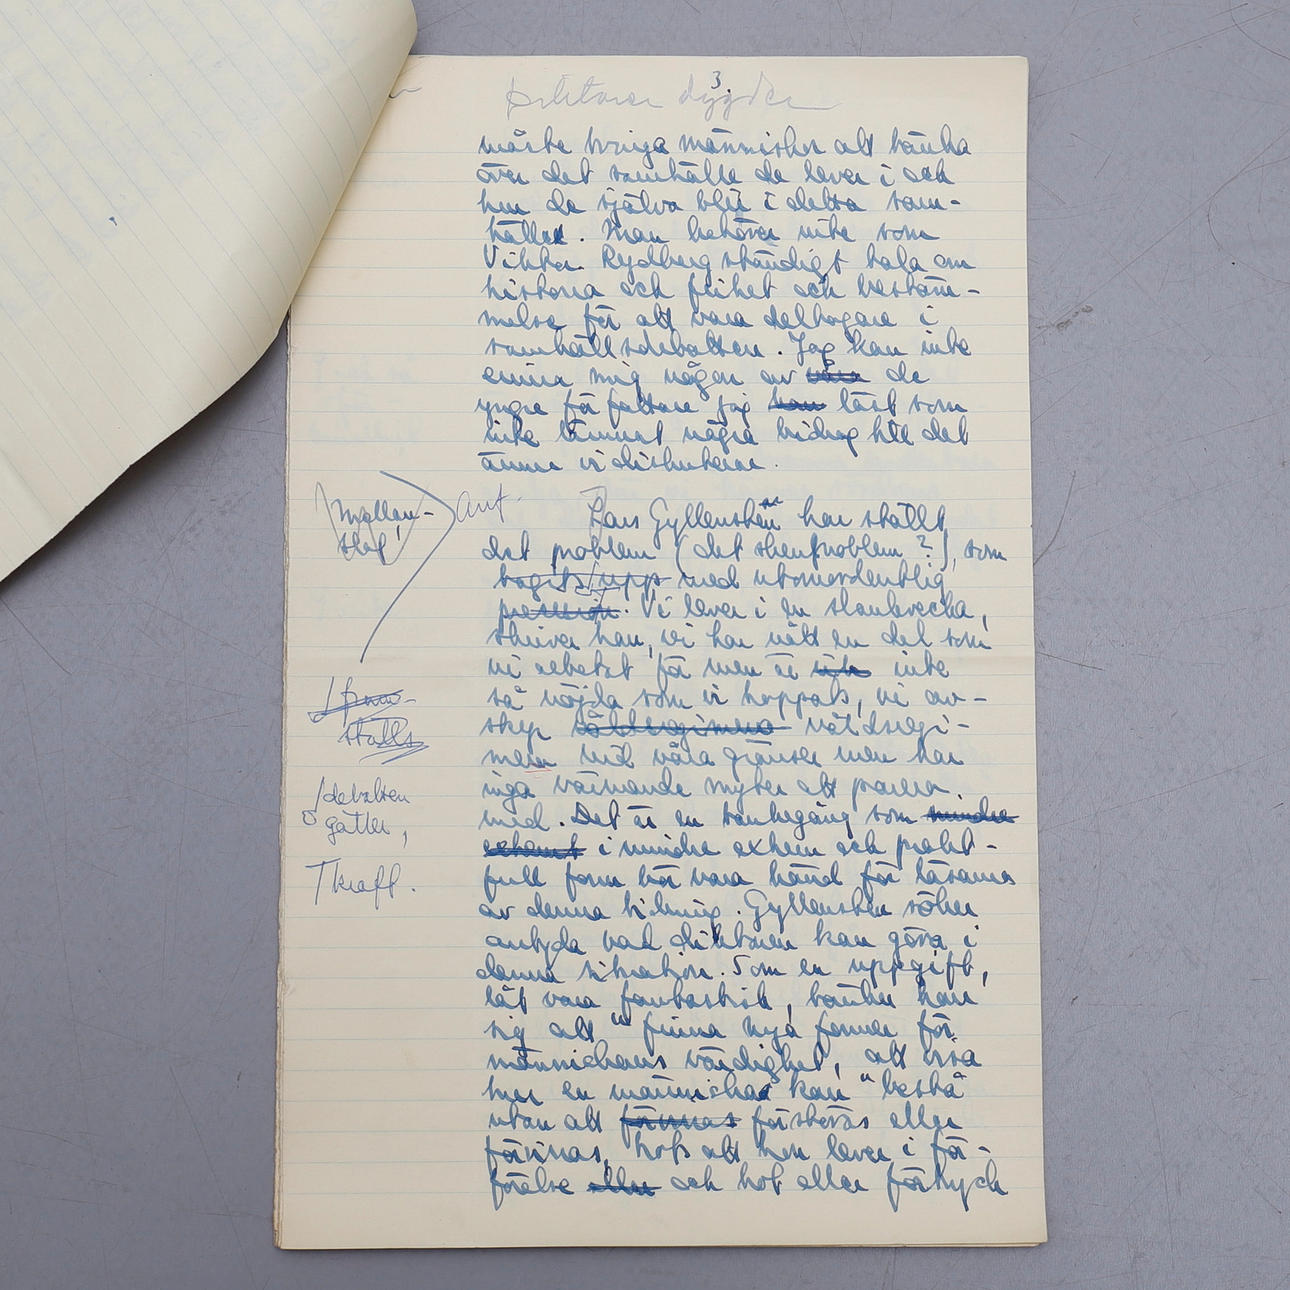 3.
dygder
måste tvinga människor att tänka
över det samhälle de lever i och
hur de själva blir i detta sam-
hälle. Man behöver inte som
Viktor Rydberg ständigt tala om
historia och frihet och bestäm-
melse för att vara deltagare i
samhällsdebatten. Jag kan inte
erinra mig någon av våra de
yngre författare jag han läst som
inte lämnat några bidrag till det
ämne vi diskuterar.
Mellan-
slag
Lars Gyllensten har ställt
det problem (det skenproblem?), som
tagits upp med utomordentlig
precision. Vi lever i en slankvecka,
skriver han, vi har nått en del som
vi arbetat för men är inte inte
så nöjda som vi hoppats, vi av-
skyr våldsregimer våldsregi-
mern vid våra gränser men har
inga värmande myter att parera
med. Det är en tankegång som mindre
extremt i mindre extrem och prakt-
full form bör vara känd för läsarna
av denna tidning. Gyllensten söker
antyda vad diktaren kan göra i
denna situation. Som en uppgift,
låt vara fantastisk, tänker han
sig att "finna nya former för
människans värdighet, att visa
hur en människa kan "bestå"
utan att förinnas förstöras eller
förintas, trots att hon lever i för-
förelse eller och hot eller förtryck
ställs
debatten
gäller,
T kraft.